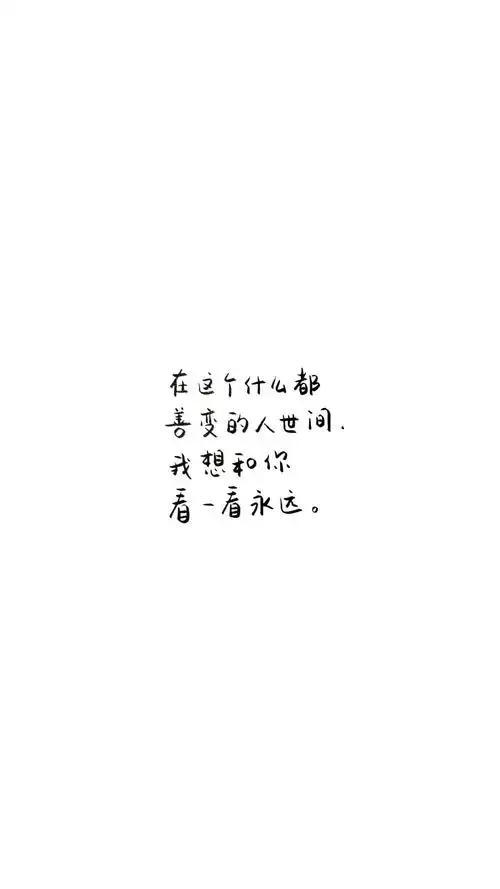 在这个什么都
善变的人世间.
我想和你
看一看永远。